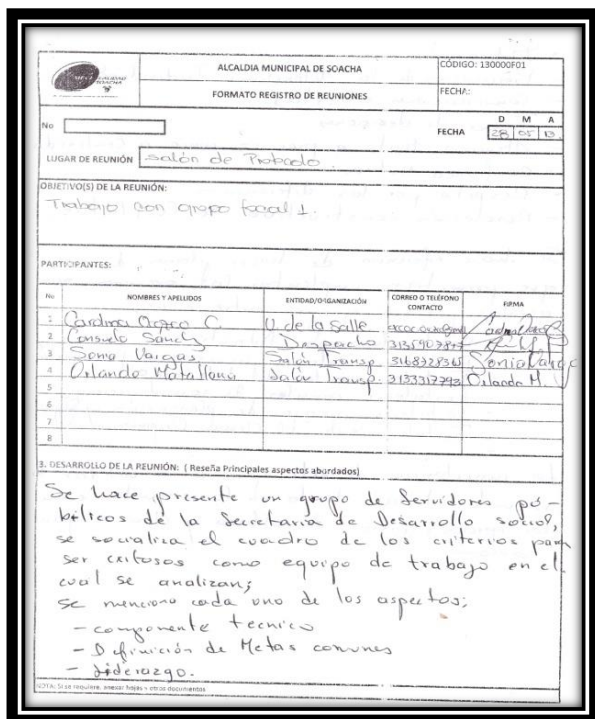 ALCALDIA MUNICIPAL DE SOACHA
CÓDIGO: 130000F01
FORMATO REGISTRO DE REUNIONES
FECHA:
No
FECHA D M A
28 05
LUGAR DE REUNIÓN salón de
OBJETIVO(S) DE LA REUNIÓN:
Trabajo con grupo focal 1.
PARTICIPANTES:
No NOMBRES Y APELLIDOS ENTIDAD/ORGANIZACIÓN CORREO O TELÉFONO CONTACTO FIRMA
1 C. U. de la Salle
2 Consuelo Despacho
3 Sonia Vargas Salón Transp. Sonia
4 Orlando Salón Transp. 3133317793 Orlando M.
5
6
7
8
3. DESARROLLO DE LA REUNIÓN: ( Reseña Principales aspectos abordados)
Se hace presente un grupo de Servidores pú-
blicos de la Secretaria de Desarrollo social,
se socializa el cuadro de los criterios para
ser exitosos como equipo de trabajo en el
cual se analizan;
se menciona cada uno de los aspectos;
- componente tecnico
- Definición de Metas comunes
- Liderazgo.
NOTA: Si se requiere, anexar hojas y otros documentos